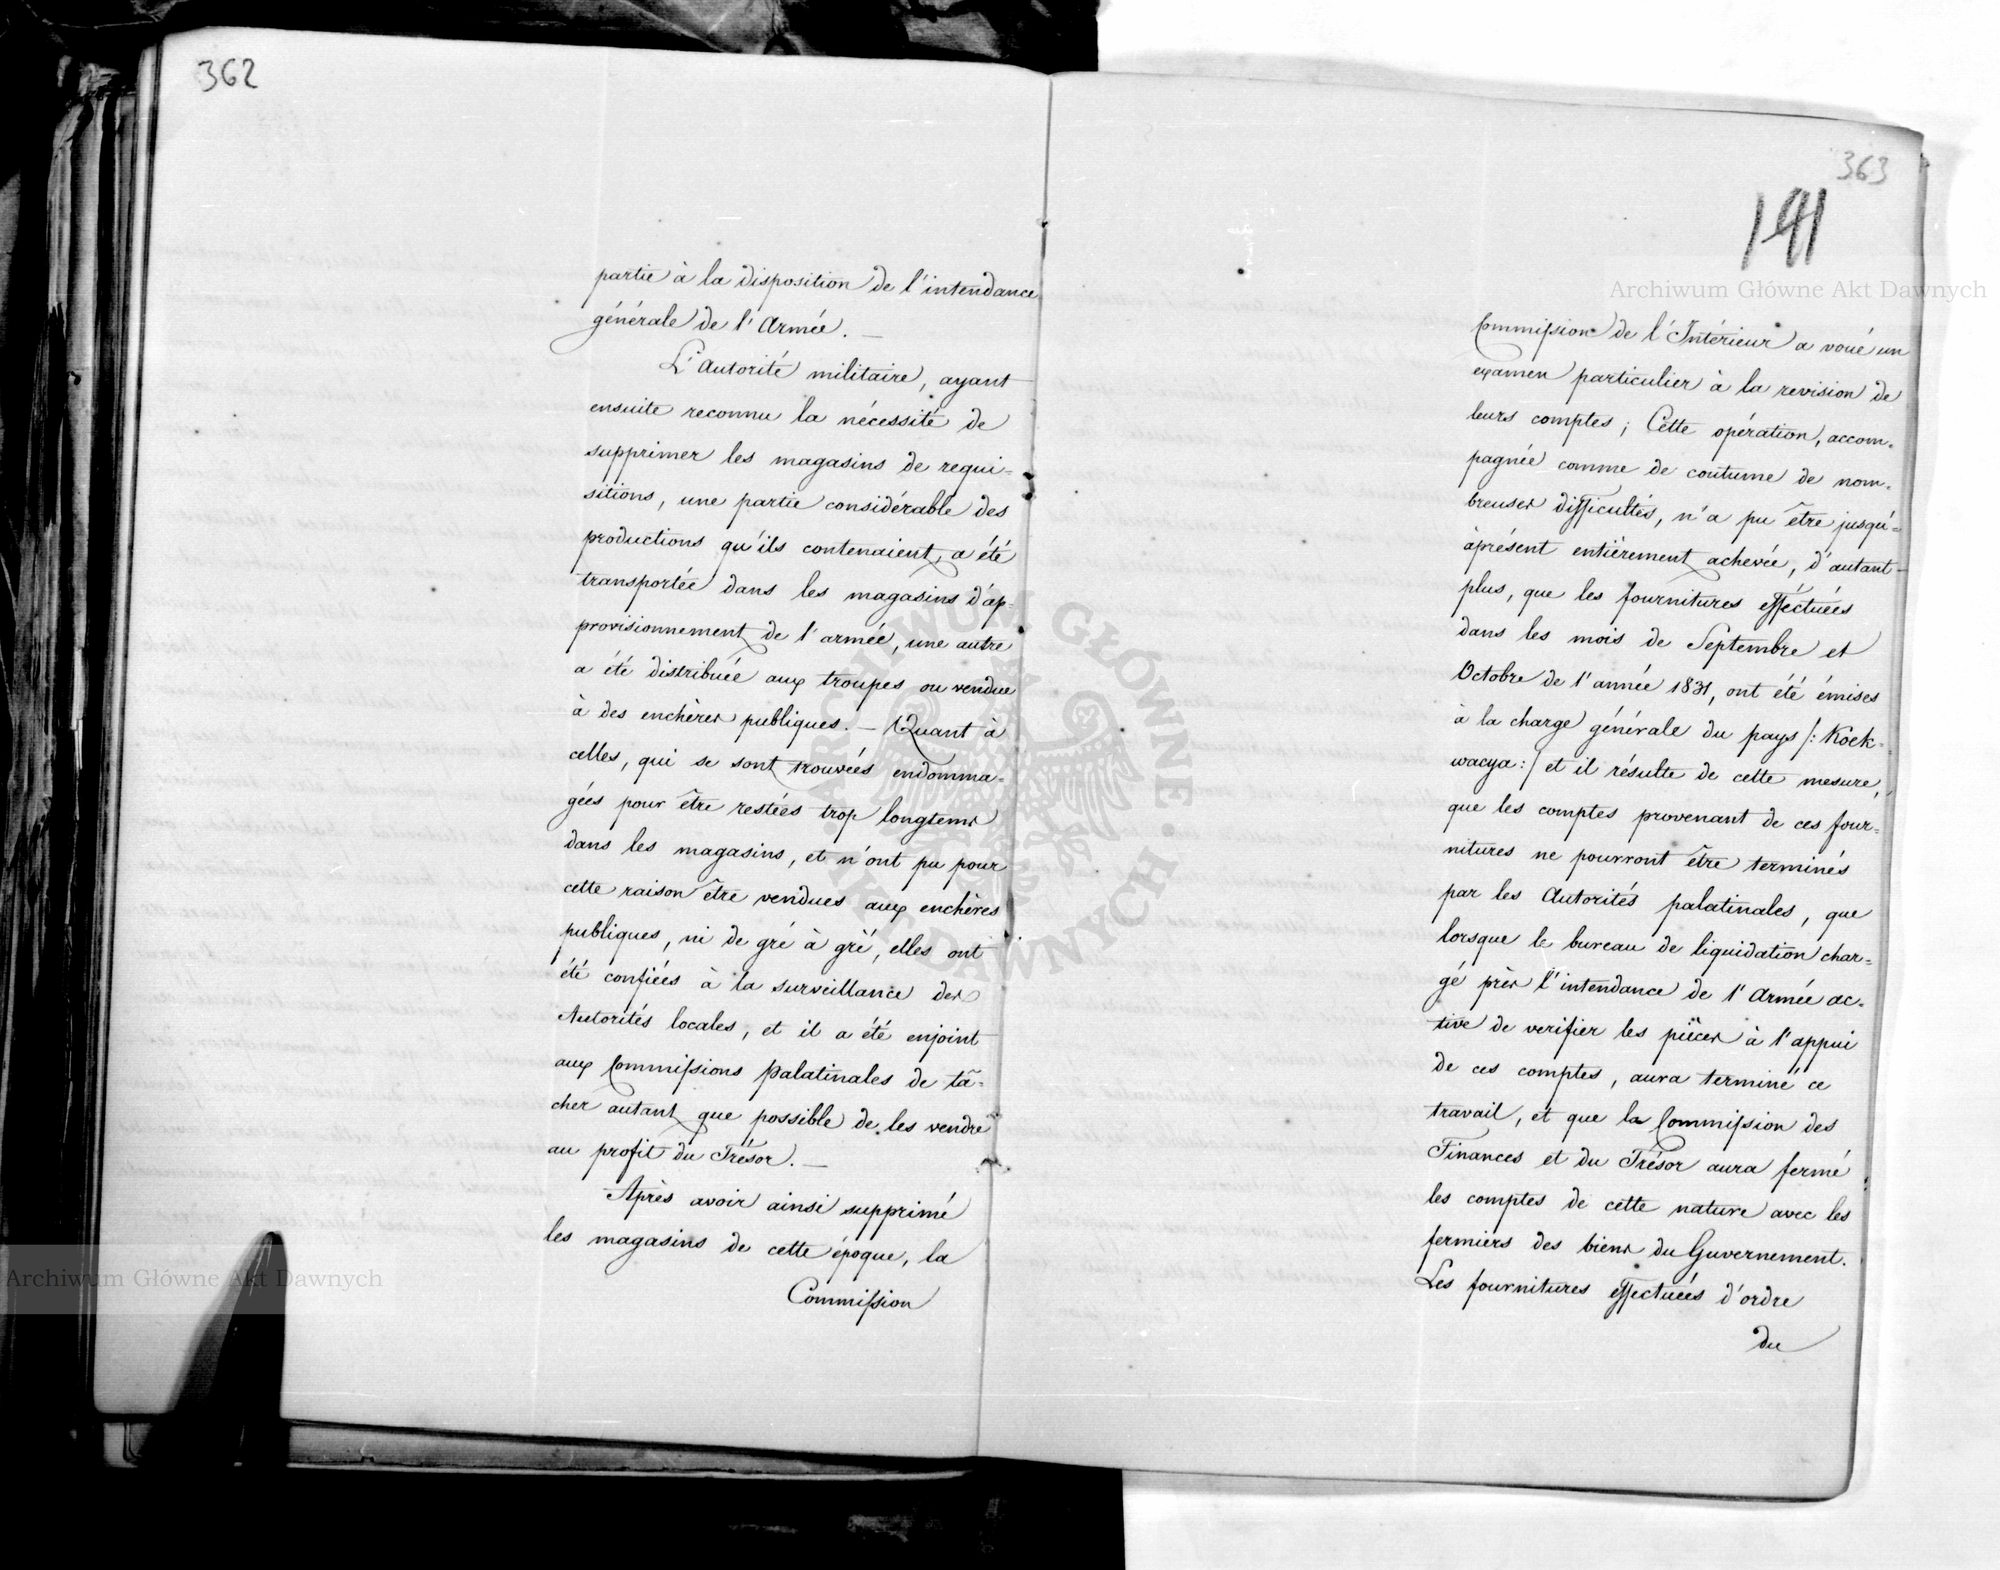 362
partie à la disposition de l'intendance
générale de l'Armée. —
L'Autorité militaire, ayant
ensuite reconnu la nécessité de
supprimer les magasins de requi=
sitions, une partie considérable des
productions qu'ils contenaient, a été
transportée dans les magasins d'ap=
provisionnement de l'armée, une autre
a été distribuée aux troupes ou vendue
à des enchères publiques. — Quant à
celles, qui se sont trouvées endomma=
gées pour être restées trop longtems
dans les magasins, et n'ont pu pour
cette raison être vendues aux enchères
publiques, ni de gré à gré, elles ont
été confiées à la surveillance des
Autorités locales, et il a été enjoint
aux Commissions Palatinales de tâ=
cher autant que possible de les vendre
au profit du Trésor. —
Après avoir ainsi supprimé
les magasins de cette époque, la
Commission
363
191
Commission de l'Intérieur a voué un
examen particulier à la revision de
leurs comptes; Cette opération, accom=
pagnée comme de coutume de nom=
breuses difficultés, n'a pu être jusqu'=
àprésent entièrement achevée, d'autant
plus, que les fournitures efféctuées
dans les mois de Septembre et
Octobre de l'année 1831, ont été émises
à la charge générale du pays /: Koek=
wacya :/ et il résulte de cette mesure,
que les comptes provenant de ces four=
nitures ne pourront être terminés
par les Autorités palatinales, que
lorsque le bureau de liquidation char=
gé près l'intendance de l'Armée ac=
tive de verifier les pièces à l'appui
de ces comptes, aura terminé ce
travail, et que la Commission des
Finances et du Trésor aura fermé
les comptes de cette nature avec les
fermiers des biens du Guvernement.
Les fournitures effectuées d'ordre
du
Archiwum Główne Akt Dawnych
Archiwum Główne Akt Dawnych
ARCHIWUM GŁÓWNE · AKT DAWNYCH ·